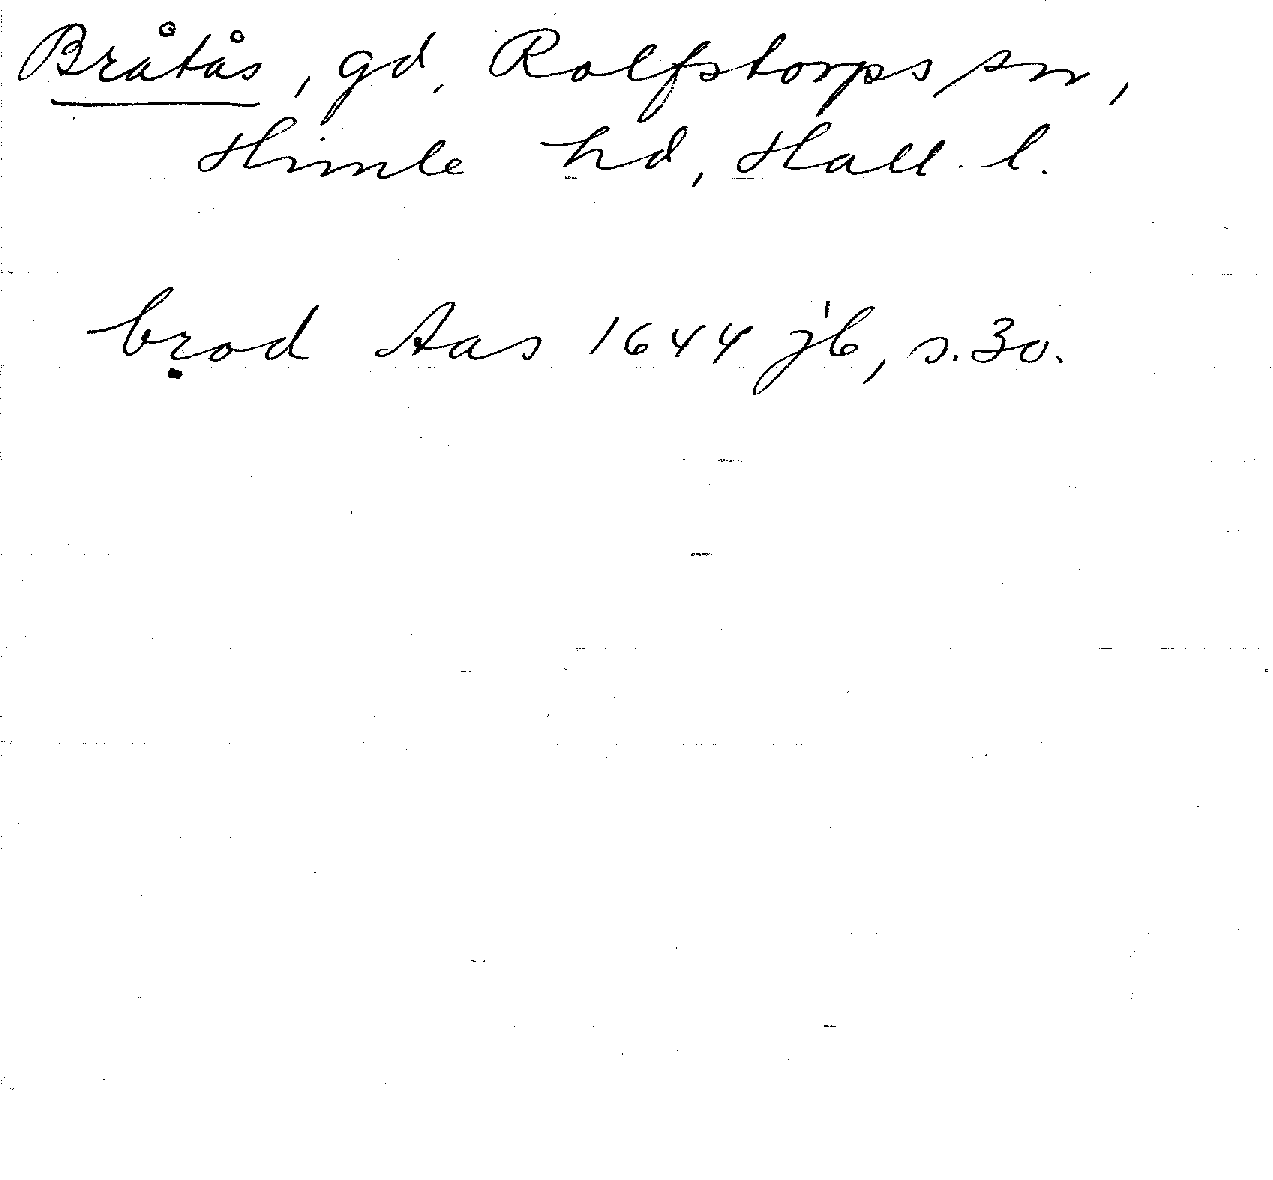 Bråtås, gd, Rolfstorps sn,
Himle hd, Hall. l.
brod Aas 1644 jb, s. 30.